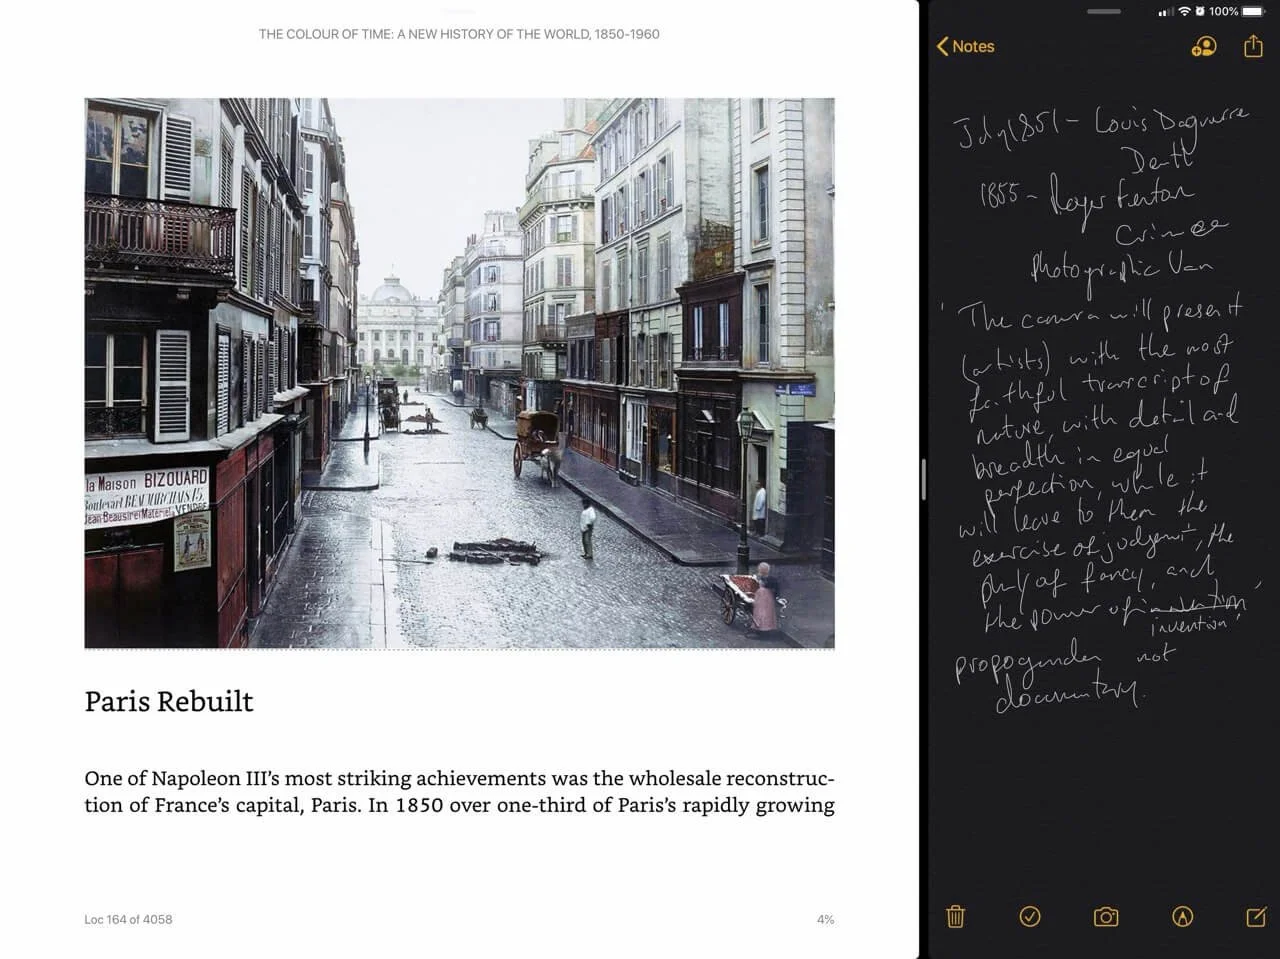 THE COLOUR OF TIME: A NEW HISTORY OF THE WORLD, 1850-1960
la Maison BIZOUARD
Boulevard BEAUMARCHAIS 15,
Jean-Beausire
Matériel à VENDRE
Paris Rebuilt
One of Napoleon III’s most striking achievements was the wholesale reconstruc-
tion of France’s capital, Paris. In 1850 over one-third of Paris’s rapidly growing
Loc 164 of 4058
4%
100%
Notes
July 1851 - Louis Daguerre
Death
1855 - Roger Fenton
Crimea
Photographic Van
'The camera will present
(artists) with the most
faithful transcript of
nature, with detail and
breadth in equal
perfection, while it
will leave to them the
exercise of judgment, the
play of fancy, and
the power of
invention'
propoganda not
documentary.